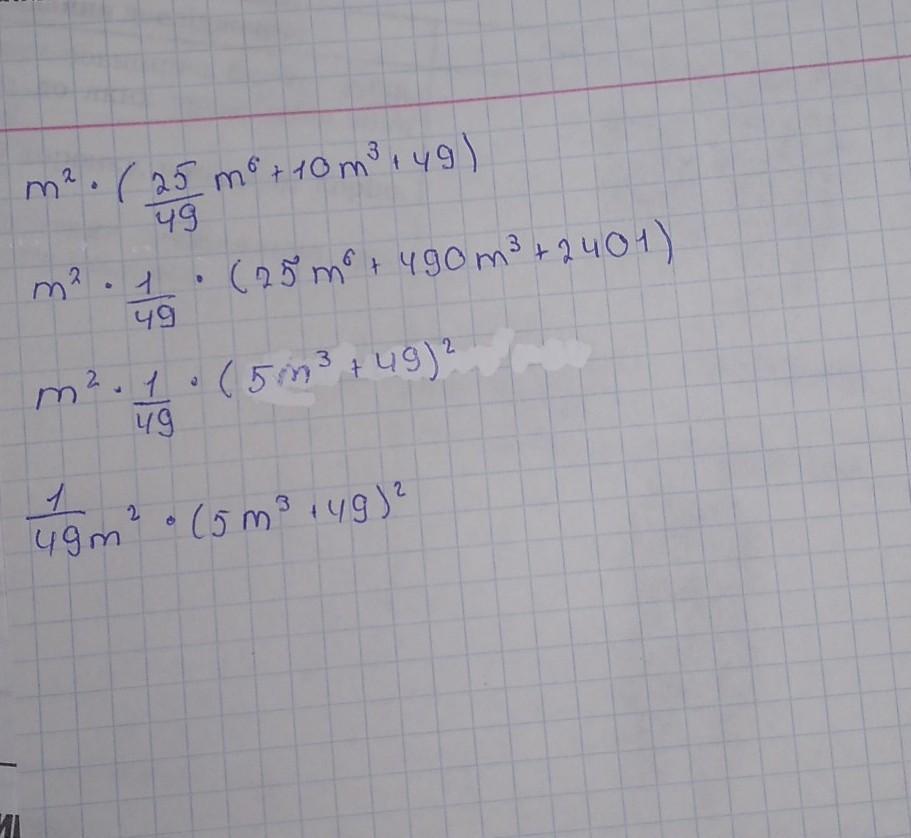 m² · (25/49 m⁶ + 10m³ + 49)
m² · 1/49 · (25m⁶ + 490m³ + 2401)
m² · 1/49 · (5m³ + 49)²
1/49 m² · (5m³ + 49)²